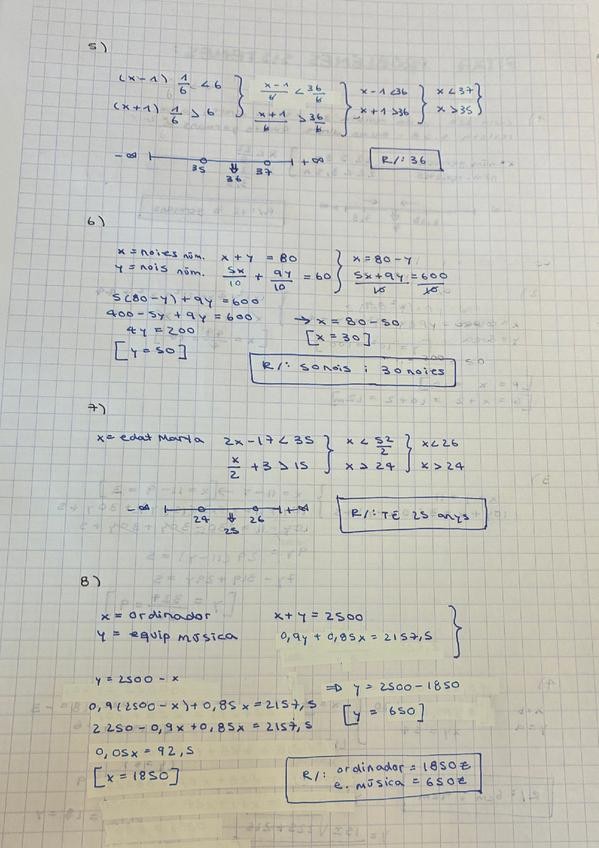 5)
(x-1) 1/6 < 6 } x-1/6 < 36/6 } x-1 < 36 } x < 37
(x+1) 1/6 > 6 } x+1/6 > 36/6 } x+1 > 36 } x > 35
-∞ 35 36 37 +∞ R/: 36
6)
x = noies núm. x + y = 80 } x = 80 - y
y = nois núm. 5x/10 + 9y/10 = 60 } 5x + 9y/10 = 600/10
5(80-y) + 9y = 600
400 - 5y + 9y = 600 → x = 80 - 50
4y = 200 [x = 30]
[y = 50]
R/: 50 nois i 30 noies
7)
x = edat Marta 2x - 17 < 35 } x < 52/2 } x < 26
x/2 + 3 > 15 } x > 24 } x > 24
-∞ 24 25 26 +∞ R/: TÉ 25 anys
8)
x = ordinador x + y = 2500
y = equip música 0,9y + 0,85x = 2157,5 }
y = 2500 - x ⇒ y = 2500 - 1850
0,9(2500 - x) + 0,85x = 2157,5 [y = 650]
2250 - 0,9x + 0,85x = 2157,5
0,05x = 92,5
[x = 1850]
R/: ordinador = 1850€
e. música = 650€